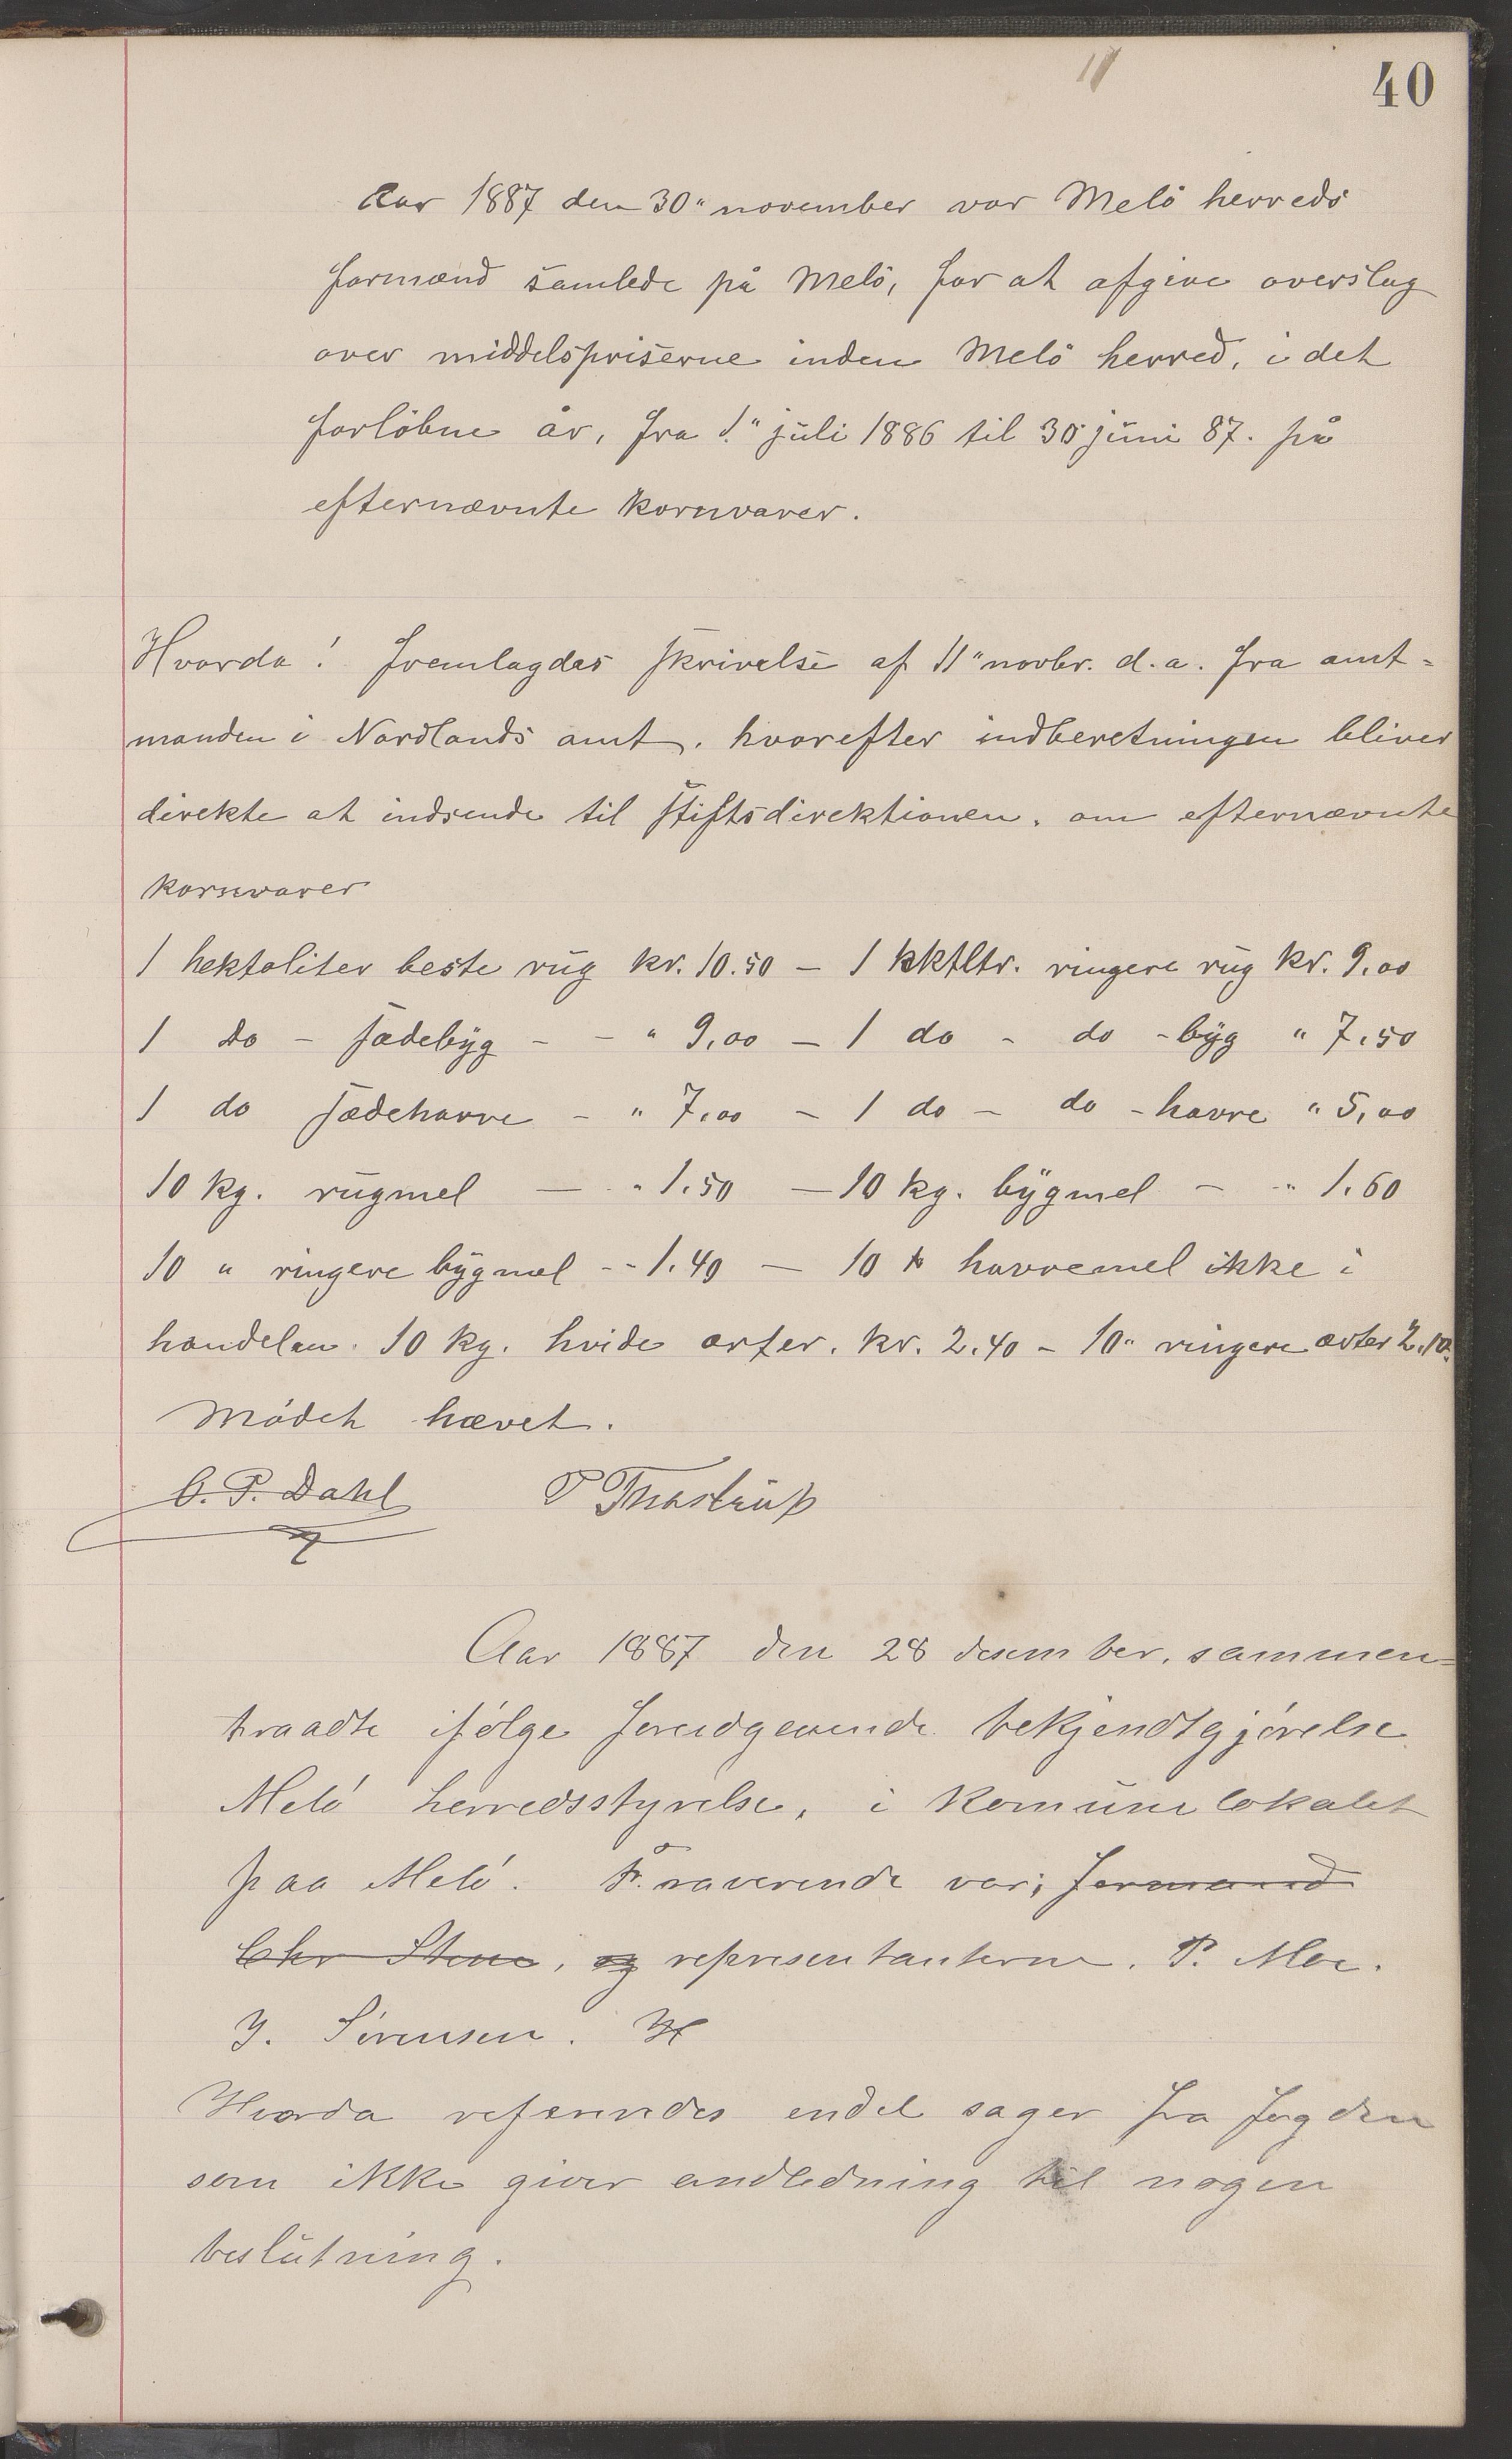 40
Aar 1887 den 30" november var Melö herreds
formænd samlede på Melö, for at afgive overslag
over middelspriserne inden Melö herred, i det
forlöbne år, fra 1." juli 1886 til 30 juni 87. på
efternævnte kornvarer.
Hvorda! fremlagdes skrivelse af 11" novbr. d.a. fra amt-
manden i Nordlands amt, hvorefter indberetningen bliver
direkte at indsende til stiftsdirektionen, om efternævnte
kornvarer
1 hektoliter beste rug kr. 10.50 - 1 hktltr. ringere rug kr. 9,00
1 Do - sædebyg - - " 9,00 - 1 do - do - byg " 7,50
1 do sædehavre - " 7,00 - 1 do - do - havre " 5,00
10 kg. rugmel - " 1.50 - 10 kg. bygmel - " 1.60
10 " ringere bygmel - - 1.40 - 10 havremel ikke i
handelen. 10 kg. hvide erter. kr. 2.40 - 10" ringere erter 2.10.
Mödet hævet.
C. P. Dahl P Thrastrup
Aar 1887 den 28 desember, sammen-
traadte ifølge foreudgaaende bekjendtgjørelse
Melø herredsstyrelse, i Komunelokalet
paa Melø. Fraverende var; formand
Chr Stene, og representanterne. P. Moe.
J. Sørensen. H
Hvorda refereredes endel sager fra fogden
som ikke giver andledning til nogen
beslutning.